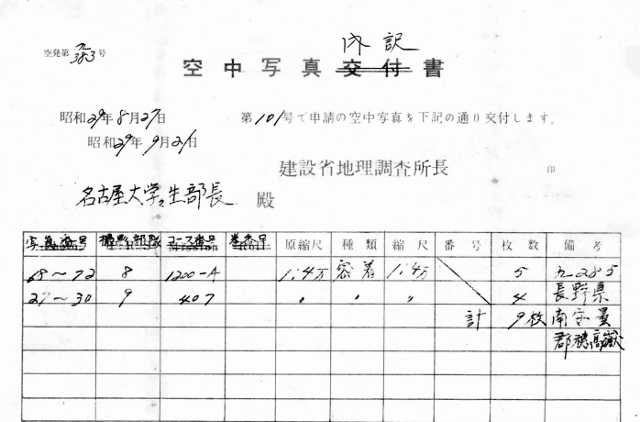 空発第九383号
内訳
空中写真交付書
昭和29年8月27日 第101号で申請の空中写真を下記の通り交付します。
昭和29年9月21日
建設省地理調査所長 印
名古屋大学学生部長 殿
写真番号 撮影部隊 コース番号 原縮尺 種類 縮尺 番号 枚数 備考
68〜72 8 1200-A 1:4万 密着 1:4万 5 九-285
27〜30 9 407 〃 〃 〃 4 長野県
計 9枚 南安曇
郡穂高嶽